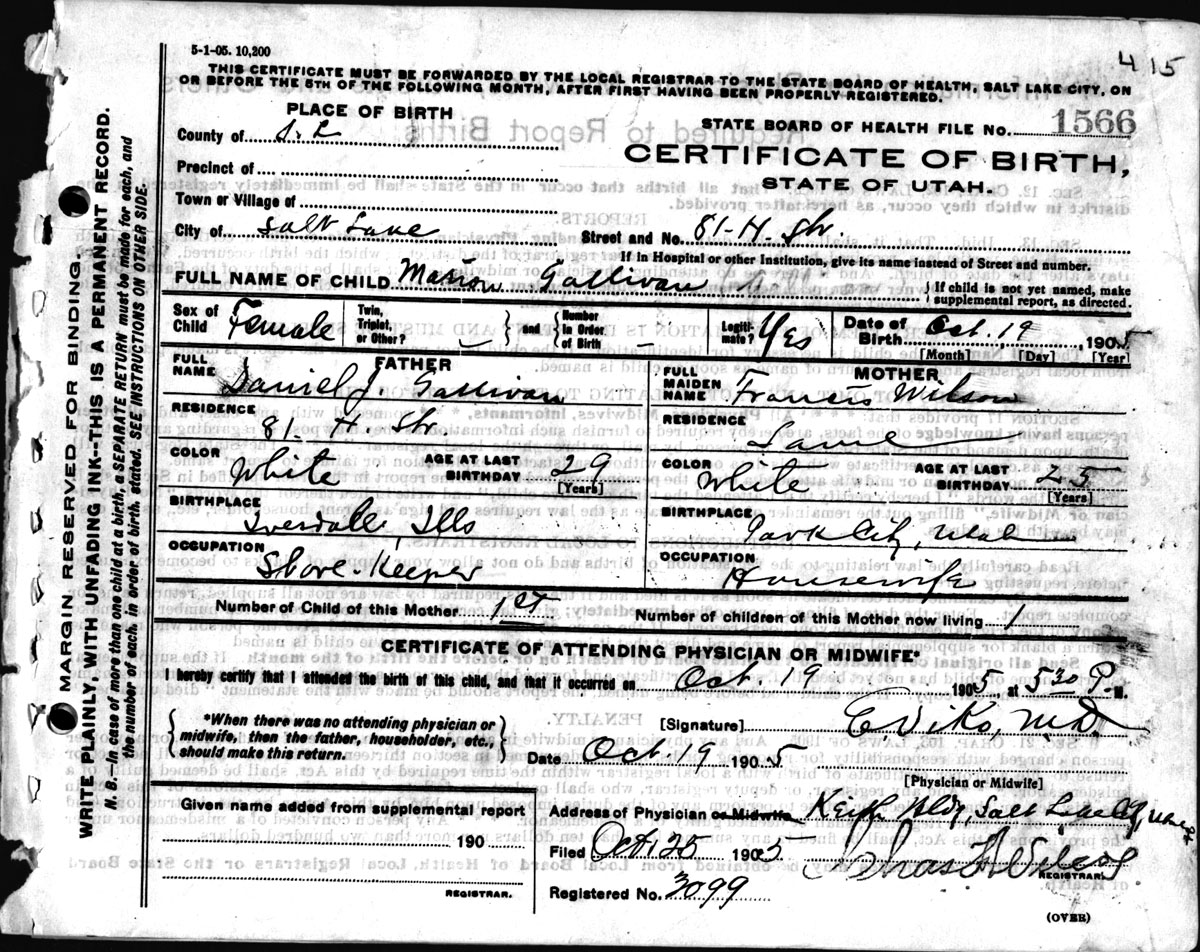 5-1-05. 10,200
415
THIS CERTIFICATE MUST BE FORWARDED BY THE LOCAL REGISTRAR TO THE STATE BOARD OF HEALTH, SALT LAKE CITY, ON
OR BEFORE THE 5TH OF THE FOLLOWING MONTH, AFTER FIRST HAVING BEEN PROPERLY REGISTERED.
PLACE OF BIRTH
County of S. L
Precinct of
Town or Village of
City of Salt Lake
STATE BOARD OF HEALTH FILE NO. 1566
CERTIFICATE OF BIRTH,
STATE OF UTAH.
Street and No. 81-H. Str.
If in Hospital or other Institution, give its name instead of Street and number.
FULL NAME OF CHILD Marion Gallivan
If child is not yet named, make
supplemental report, as directed.
Sex of Child Female
Twin, Triplet, or Other?
and
Number in Order of Birth
Legiti-mate? Yes
Date of Birth Oct. 19, 1905
[Month] [Day] [Year]
FATHER
FULL NAME Daniel J. Gallivan
RESIDENCE
81- H. Str.
COLOR White
AGE AT LAST BIRTHDAY 29
[Years]
BIRTHPLACE
Ills
OCCUPATION
Store-Keeper
MOTHER
FULL MAIDEN NAME Francis Wilson
RESIDENCE
Same
COLOR White
AGE AT LAST BIRTHDAY 25
[Years]
BIRTHPLACE
Park City, Utah
OCCUPATION
Housewife
Number of Child of this Mother 1st
Number of children of this Mother now living 1
CERTIFICATE OF ATTENDING PHYSICIAN OR MIDWIFE*
I hereby certify that I attended the birth of this child, and that it occurred on Oct. 19 1905, at 5 30 P. M.
*When there was no attending physician or
midwife, then the father, householder, etc.,
should make this return.
[Signature] E. Viko, M.D.
Date Oct. 19 1905
[Physician or Midwife]
Given name added from supplemental report
190
REGISTRAR.
Address of Physician or Midwife Keith Bldg, Salt Lake City, Utah
Filed Oct. 25 1905
REGISTRAR.
Registered No. 3099
(OVER)
MARGIN RESERVED FOR BINDING.
WRITE PLAINLY, WITH UNFADING INK--THIS IS A PERMANENT RECORD.
N. B.--In case of more than one child at a birth, a SEPARATE RETURN must be made for each, and
the number of each, in order of birth, stated. SEE INSTRUCTIONS ON OTHER SIDE.